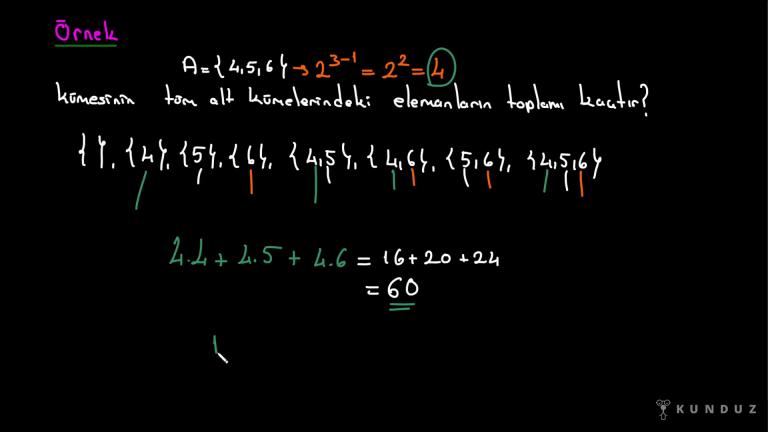 Örnek
A = {4,5,6} → 2³⁻¹ = 2² = 4
kümesinin tüm alt kümelerindeki elemanların toplamı kaçtır?
{ }, {4}, {5}, {6}, {4,5}, {4,6}, {5,6}, {4,5,6}
4.4 + 4.5 + 4.6 = 16 + 20 + 24
= 60
KUNDUZ